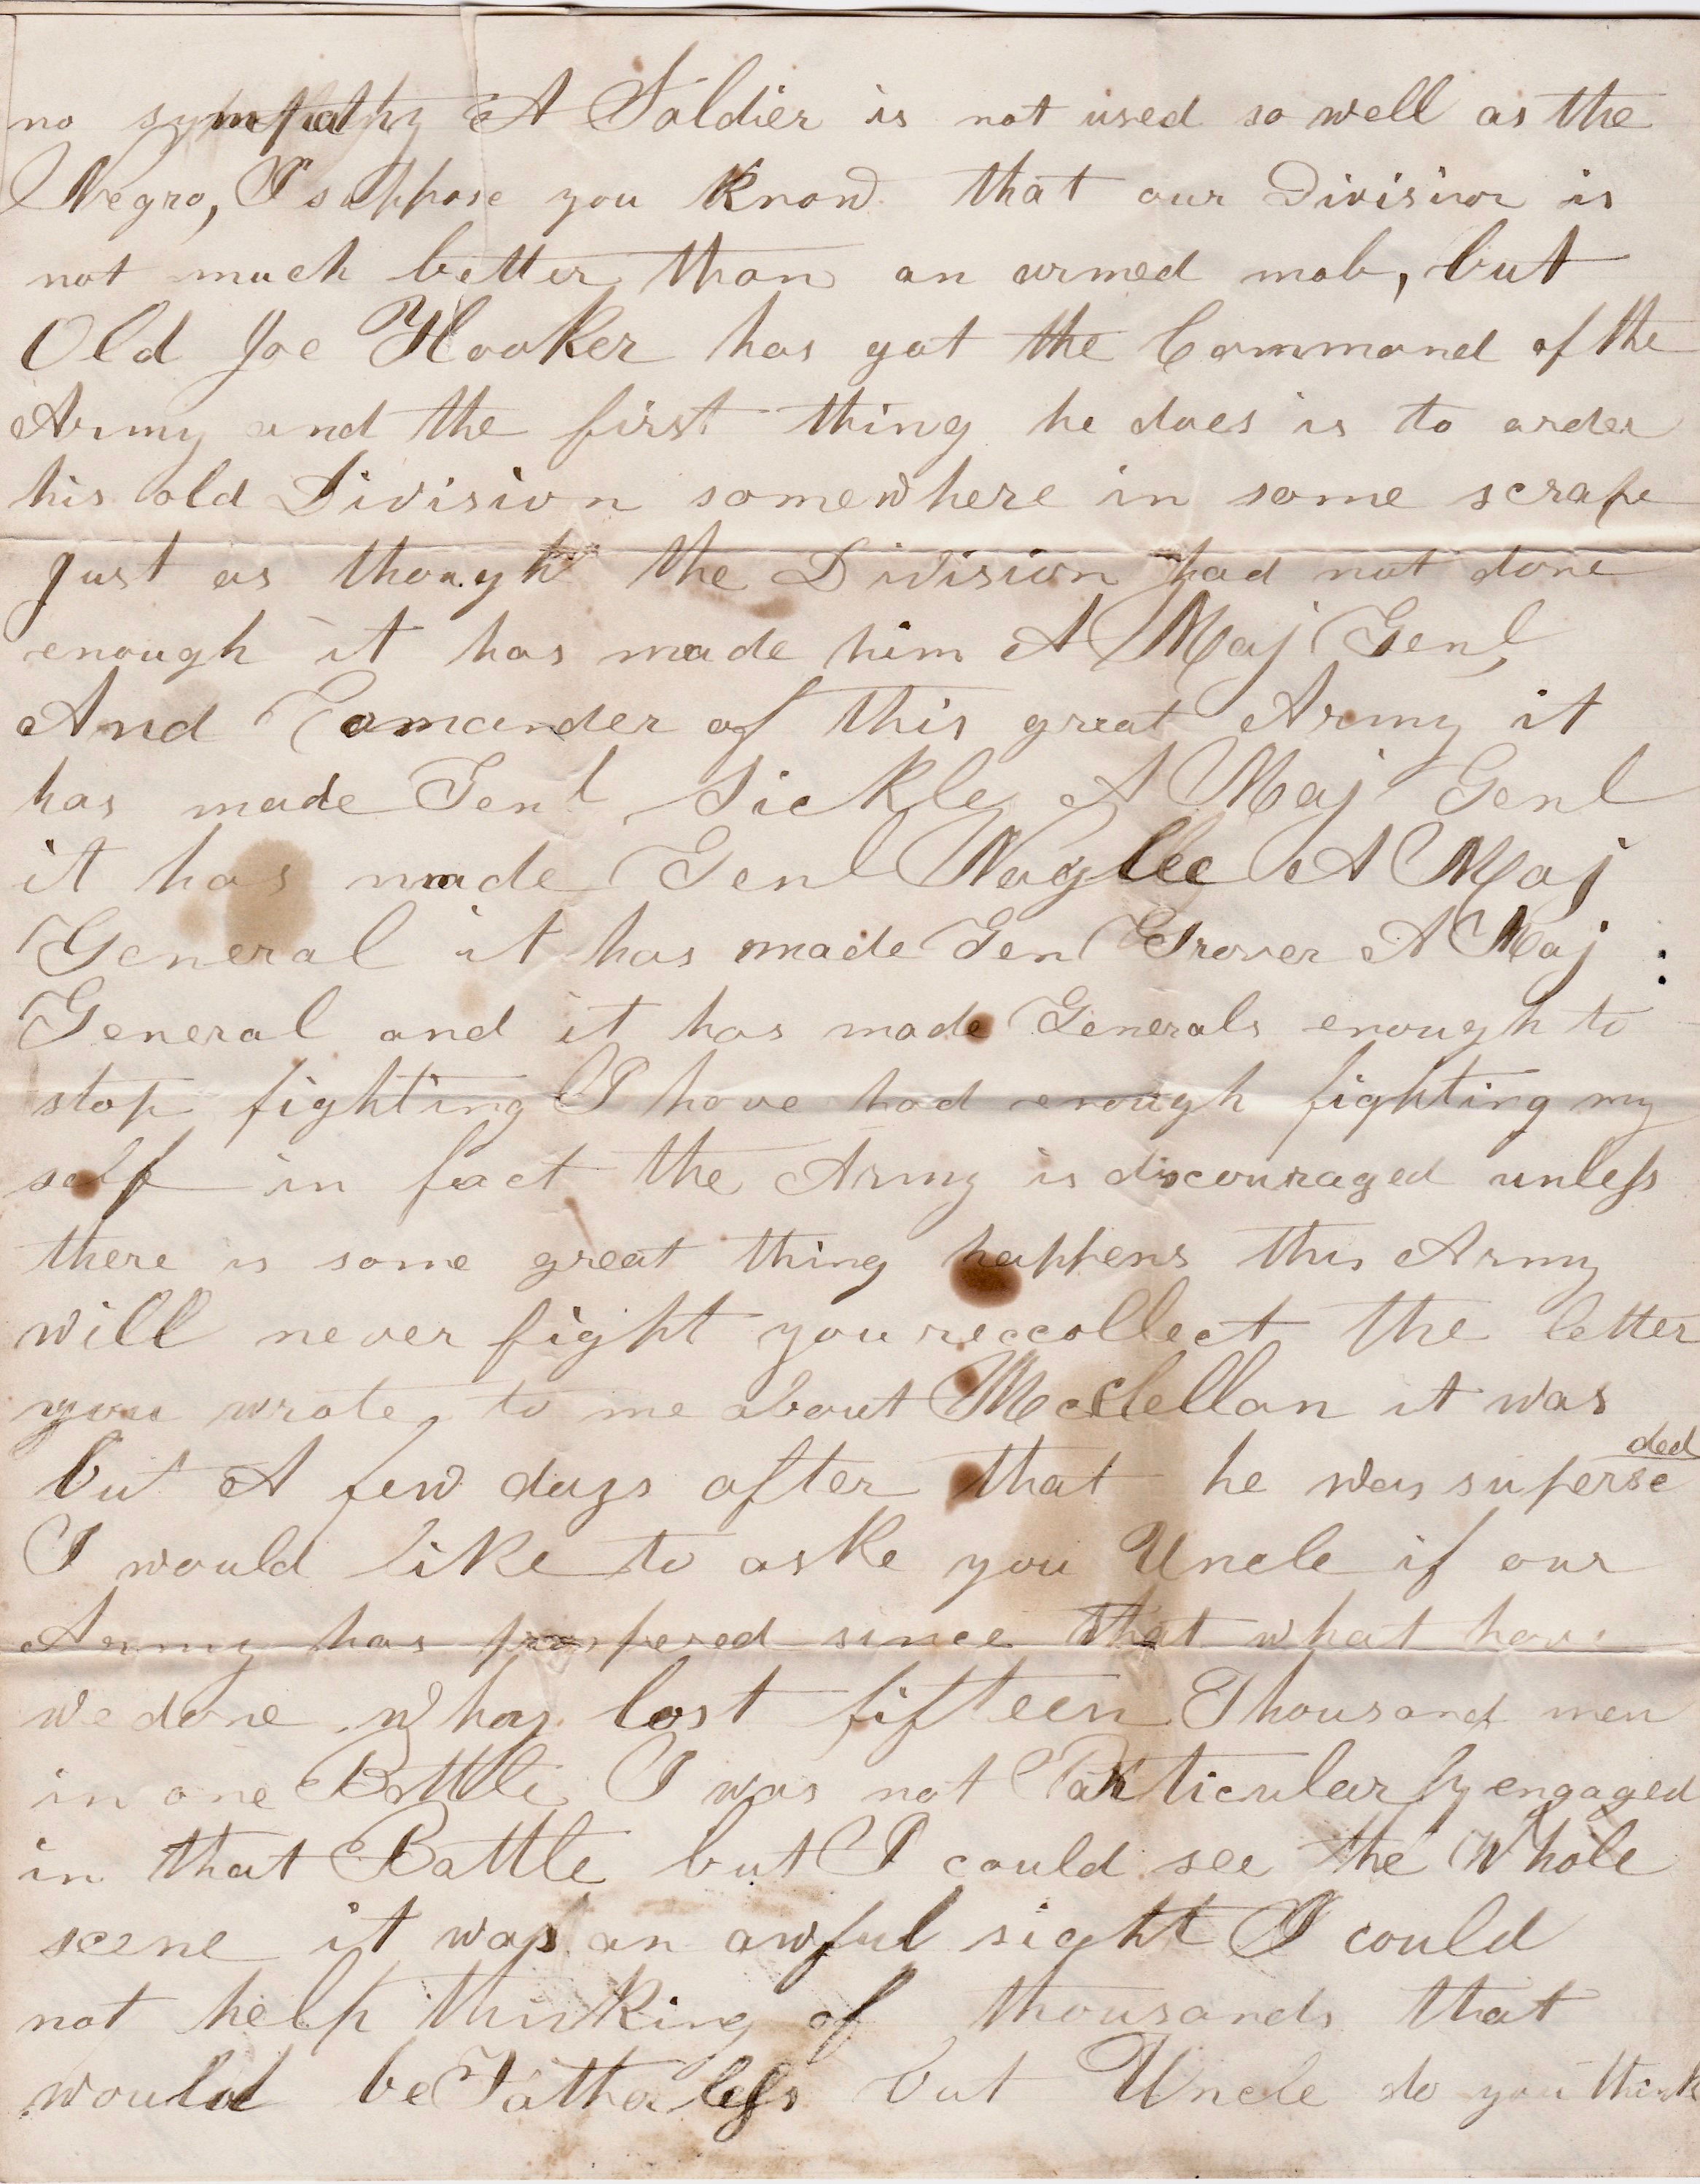 no sympathy A Soldier is not used so well as the
Negro, I suppose you Know that our Division is
not much better than an armed mob, but
Old Joe Hooker has got the Command of the
Army and the first thing he does is to order
his old Division somewhere in some scrape
Just as though the Division had not done
enough it has made him A Maj Genl,
And Comander of this great Army it
has made Genl Sickles A Maj Genl
it has made Genl Naglee A Maj
General it has made Gen Grover A Maj :
General and it has made Generals enough to
stop fighting I have had enough fighting my
self in fact the Army is discouraged unless
there is some great thing happens this Army
will never fight you reccollect the letter
you wrote, to me about Mcclellan it was
but A few days after that he was superseded
I would like to aske you Uncle if our
Army has prospered since that what have
we done Why lost fifteen Thousand men
in one Battle I was not Particularly engaged
in that Battle but I could see the Whole
scene it was an awful sight I could
not help thinking of thousands that
would be Father less but Uncle do you think